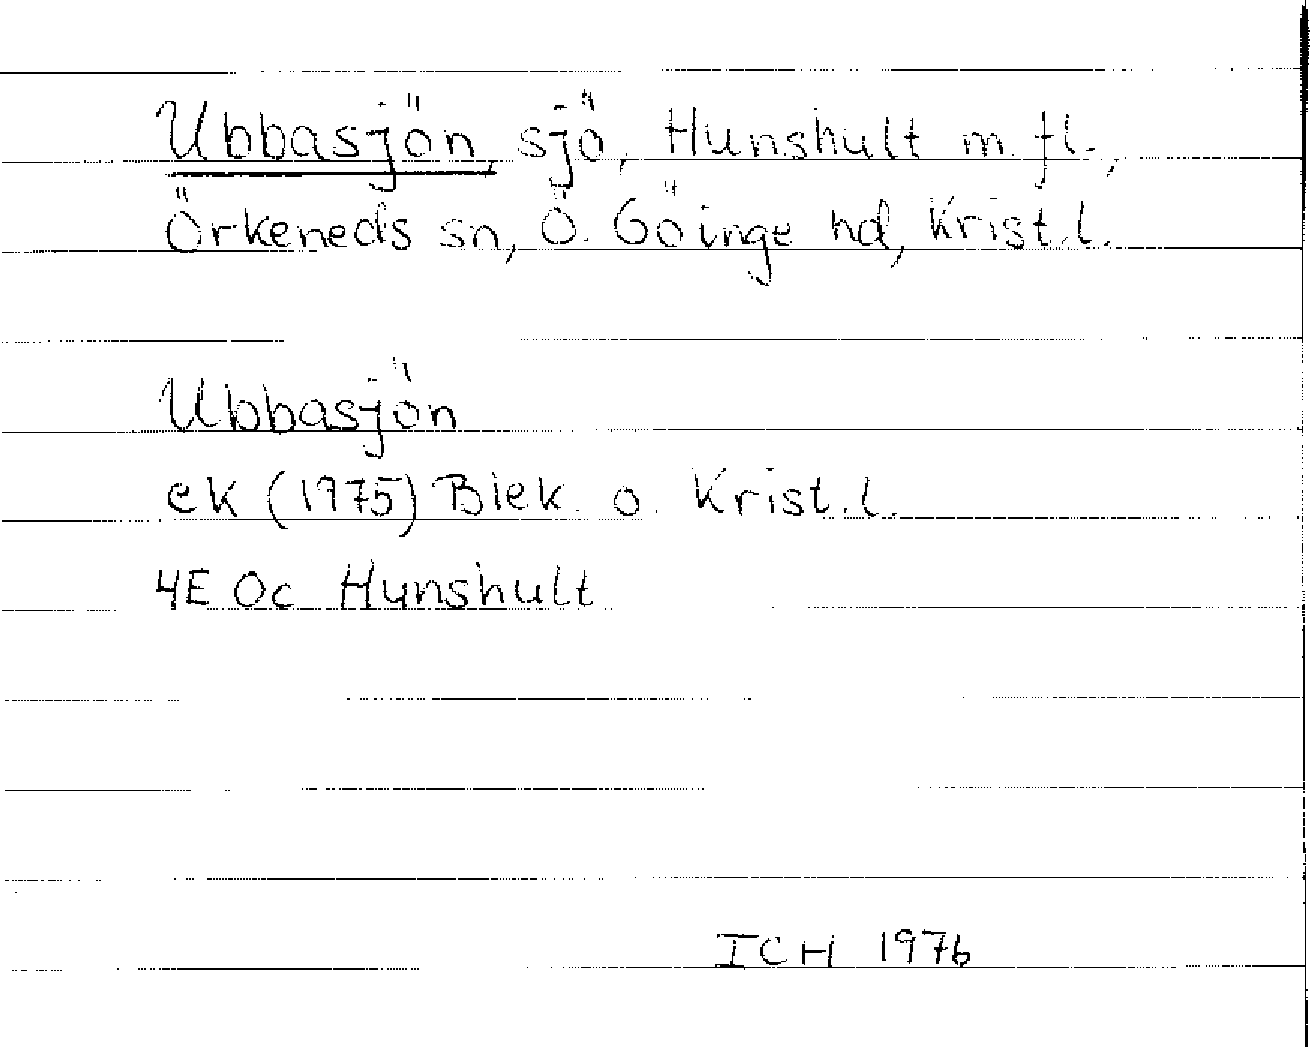 Ubbasjön, sjö, Hunshult m. fl.,
Örkeneds sn, Ö. Göinge hd, Krist. l.
Ubbasjön
ek (1975) Blek. o. Krist. l.
4E 0c Hunshult
ICH 1976